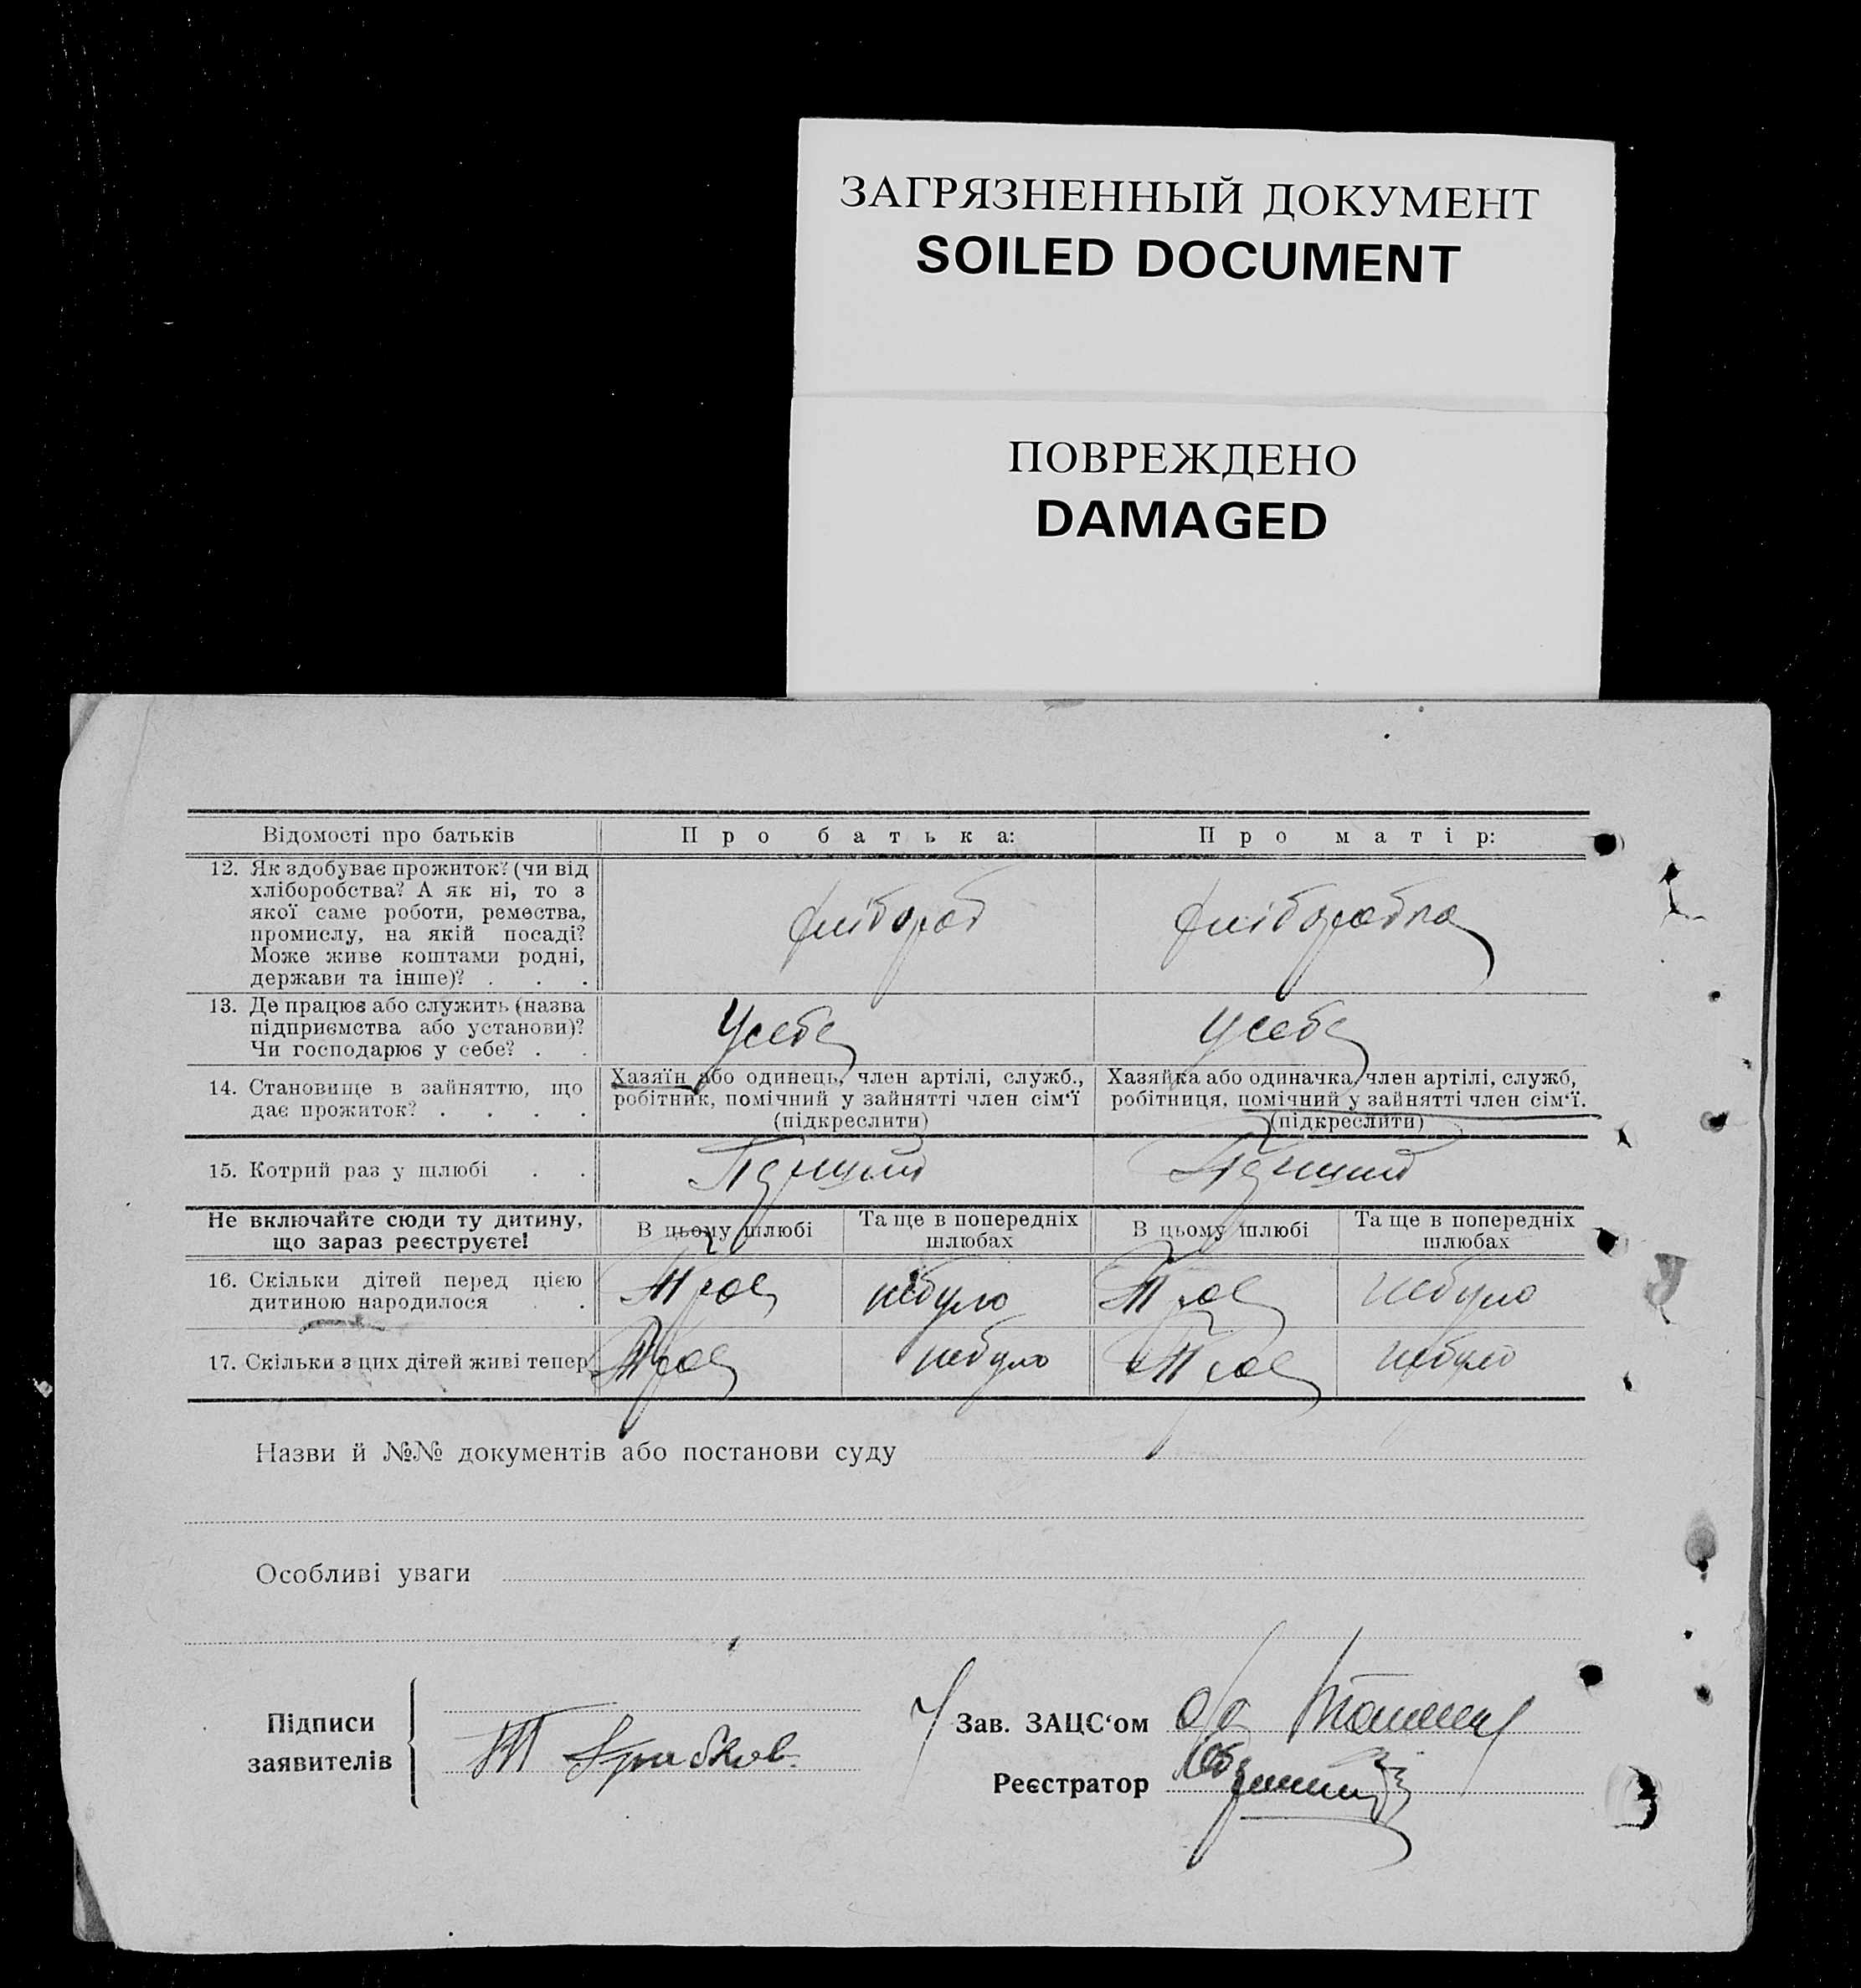 ЗАГРЯЗНЕННЫЙ ДОКУМЕНТ
SOILED DOCUMENT
ПОВРЕЖДЕНО
DAMAGED
Відомості про батьків
Про батька:
Про матір:
12. Як здобуває прожиток? (чи від
хліборобства? А як ні, то з
якої саме роботи, ремества,
промислу, на якій посаді?
Може живе коштами родні,
держави та інше)? . . .
хлібороб
хліборобка
13. Де працює або служить (назва
підприємства або установи)?
Чи господарює у себе? . .
У себе
У себе
14. Становище в зайняттю, що
дає прожиток? . . . .
Хазяїн або одинець, член артілі, служб.,
робітник, помічний у зайнятті член сім‘ї
(підкреслити)
Хазяйка або одиначка, член артілі, служб,
робітниця, помічний у зайнятті член сім‘ї.
(підкреслити)
15. Котрий раз у шлюбі . .
Перший
Перший
Не включайте сюди ту дитину,
що зараз реєструєте!
В цьому шлюбі
Та ще в попередніх
шлюбах
В цьому шлюбі
Та ще в попередніх
шлюбах
16. Скільки дітей перед цією
дитиною народилося . .
Трое
небуло
Трое
небуло
17. Скільки з цих дітей живі тепер
Трое
небуло
Трое
небуло
Назви й №№ документів або постанови суду
Особливі уваги
Підписи
заявителів
Зав. ЗАЦС‘ом
Реєстратор